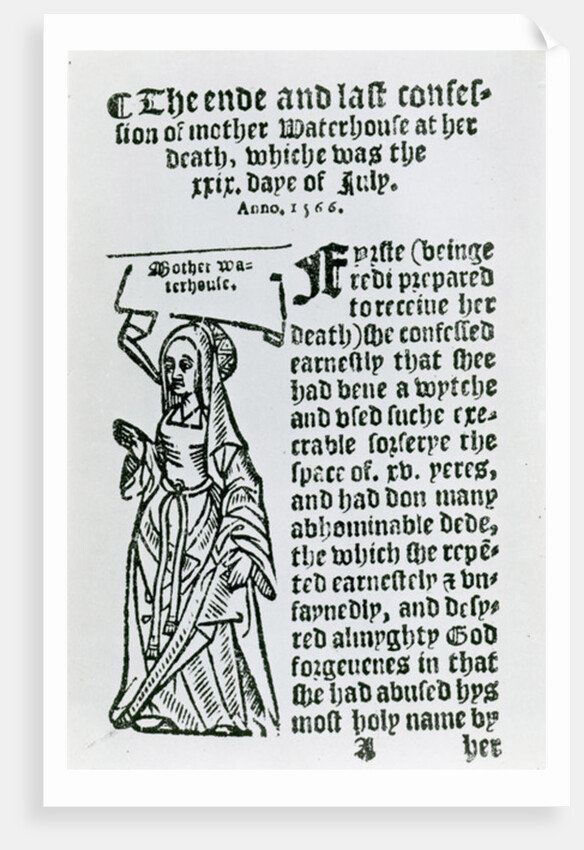 ¶ The ende and last confes-
sion of mother Waterhouse at her
death, whiche was the
xxix. daye of July.
Anno. 1566.
Mother wa=
terhouse.
Fyrste (beinge
redi prepared
to receiue her
death) she confessed
earnestly that shee
had bene a wytche
and vsed suche exe-
crable sorserye the
space of. xv. yeres,
and had don many
abhominable dede,
the which she repē-
ted earnestely & vn-
faynedly, and desy-
red almyghty God
forgeuenes in that
she had abused hys
most holy name by
A her